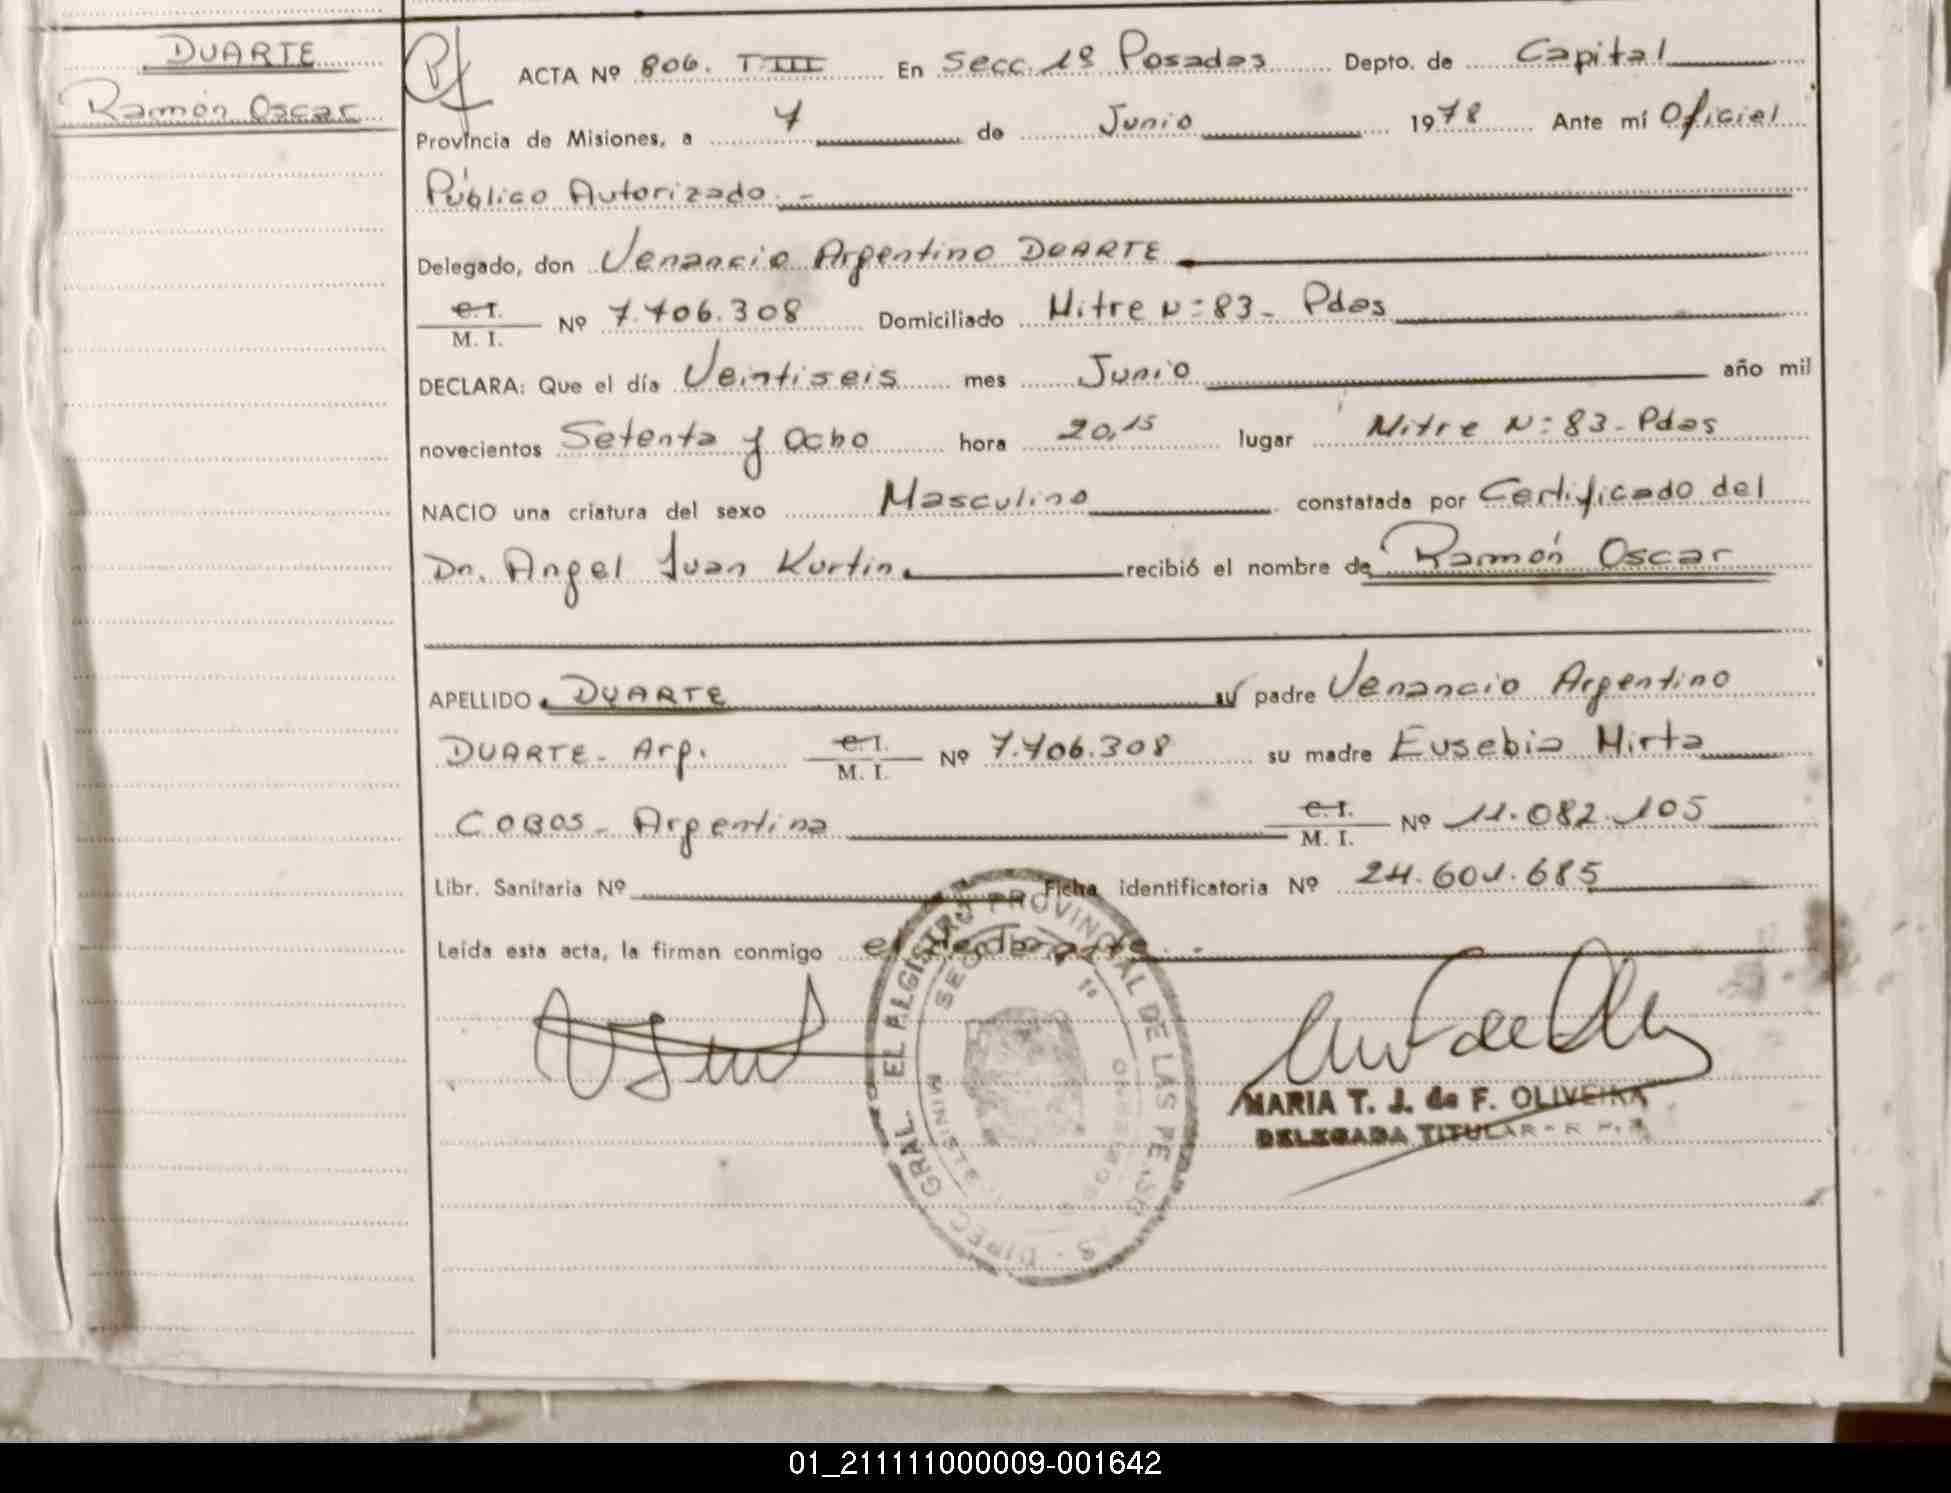 DUARTE
Ramón Oscar
ACTA Nº 806. T III En Secc. 1ª Posadas Depto. de Capital
Provincia de Misiones, a 7 de Junio 1978 Ante mí Oficial
Público Autorizado.-
Delegado, don Venancio Argentino DUARTE
C.I.
M. I. Nº 7.706.308 Domiciliado Mitre N: 83 - Pdas
DECLARA: Que el día Veintiseis mes Junio año mil
novecientos Setenta y Ocho hora 20,15 lugar Mitre N: 83 - Pdas
NACIO una criatura del sexo Masculino constatada por Certificado del
Dr. Angel Juan Kurtin. recibió el nombre de Ramón Oscar
APELLIDO DUARTE su padre Venancio Argentino
DUARTE - Arg. C.I.
M. I. Nº 7.706.308 su madre Eusebia Mirta
COBOS - Argentina C.I.
M. I. Nº 11.082.105
Libr. Sanitaria Nº Ficha identificatoria Nº 24.601.685
Leída esta acta, la firman conmigo el
MARIA T. J. de F. OLIVEIRA
DELEGADA TITULAR
01_211111000009-001642